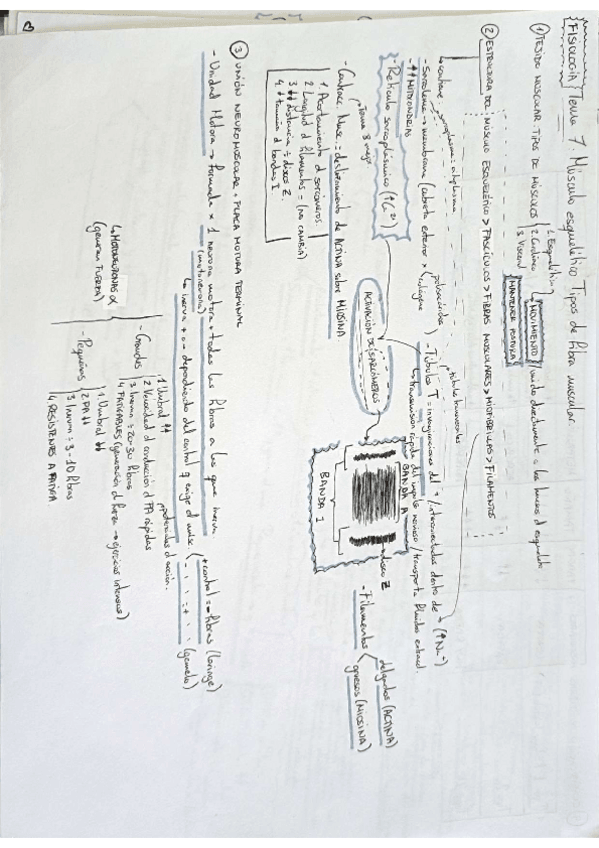 {FISIOLOGÍA} Tema 7 Músculo esquelético Tipos de fibra muscular.
① TEJIDO MUSCULAR TIPOS DE MÚSCULOS
1. Esquelético
2. Cardíaco
3. Visceral
MOVIMIENTO / unido directamente a los huesos d esqueleto
MANTENER POSTURA
② ESTRUCTURA DEL MÚSCULO ESQUELÉTICO > FASCÍCULOS > FIBRAS MUSCULARES > MIOFIBRILLAS > FILAMENTOS
contiene sarcoplasma: citoplasma
- Sarcolema → membrana (cubierta exterior x
polisacáridos
colágeno
- ↑↑ MITOCONDRIAS
- Túbulos T = invaginaciones del
túbulos transversales
/ interconectados dentro de
↳ transmisión rápida del impulso nervioso / transporta fluidos extracel.
- Retículo sarcoplásmico (↑Ca²⁺)
ACTIVACIÓN DE SARCÓMEROS
BANDA A
disco Z
BANDA I
- Filamentos
delgados (ACTINA)
gruesos (MIOSINA)
- Contracc. Musc. = deslizamiento de ACTINA sobre MIOSINA
1. Acortamiento d sarcómeros
2. Longitud d filamentos = (no CAMBIA)
3. ↓↓ distancia ÷ discos Z.
4. ↓ tamaño d bandas I.
③ UNIÓN NEUROMUSCULAR + PLACA MOTORA TERMINAL
- Unidad Motora → formada x 1 neurona motora + todas las fibras a las que inerva.
(motoneurona)
↳ inerva + o - dependiendo del control q exige el músc.
+ control = - fibras (laringe)
- " = + " (gemelo)
↳ MOTONEURONAS α
(generan FUERZA)
- Grandes
1 Umbral ↑↑
2 Velocidad d conducción d PA rápidas
potenciales d acción.
3 Inervan ÷ 20-30 fibras
4 FATIGABLES (generación d fuerza → ejercicios intensos)
- Pequeñas
1 Umbral ↓↓
2 PA ↓↓
3 Inervan ÷ 3 - 10 fibras
4 RESISTENTES A FATIGA